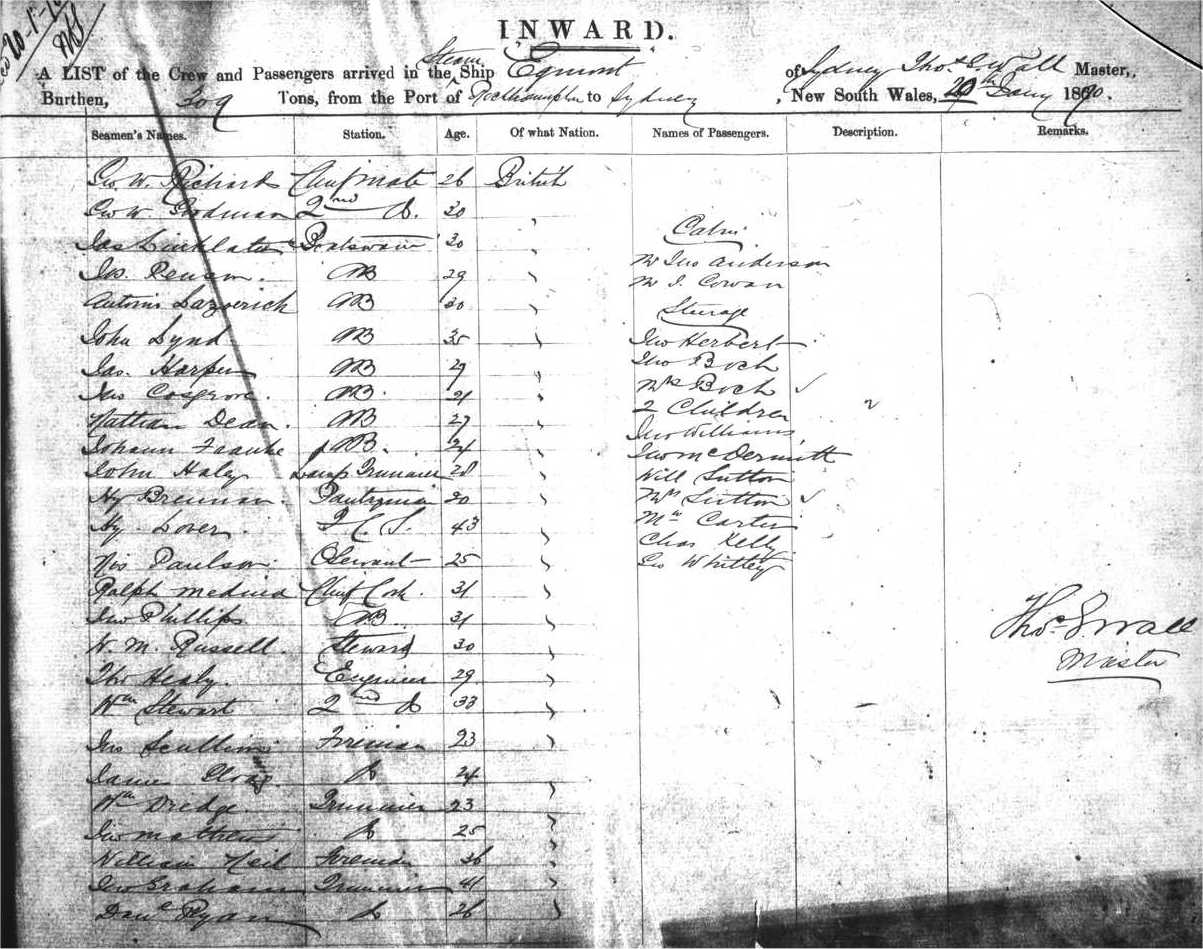 20-1-70
INWARD.
A LIST of the Crew and Passengers arrived in the Steam Ship Egmont of Sydney Thos. E Wall Master,
Burthen, 309 Tons, from the Port of Rockhampton to Sydney, New South Wales, 20th Jany 1870.
Seamen's Names. Station. Age. Of what Nation. Names of Passengers. Description. Remarks.
Geo. W. Richards Chief Mate 26 British
Geo W. Goodman 2nd Do. 30
Cabin
Jas Linklater Boatswain 30
Mr Jno Anderson
Jas. AB 29
Mr J. Cowan
Antonio AB 30
Steerage
John Lynd AB 35
Jno Herbert
Jas. Harper AB 29
Jno Boch
Jno Cosgrove. AB. 21
Mrs Boch
2 Children
Nathan Dean. AB 27
Jno Williams
Johann Franke AB. 24
Jno McDermott
John Haley Lamp Trimmer 28
Will Sutton
Hy Brennan. Pantryman 20
Mrs Sutton
Hy. Lover. 43
Mrs Carter
Chas Kelly
Paulson. 25
Geo Whitley
Ralph Medina Chief Cook. 31
Jno Phillips AB 31
W. M. Russell. Steward 30
Thos E Wall
Master
Healy. Engineer 29
Wm Stewart 2nd Do 33
Jno Scullion Fireman 23
James Do 24
Wm Dredge. Trimmer 23
Jno Mathews Do 25
William Neil Fireman 36
Jno Graham Trimmer 41
Danl Ryan Do 26